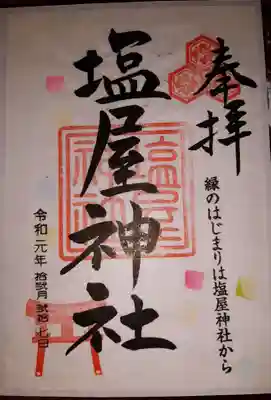 奉拝
縁のはじまりは塩屋神社から
塩屋神社
令和元年 拾弐月 弐拾七日